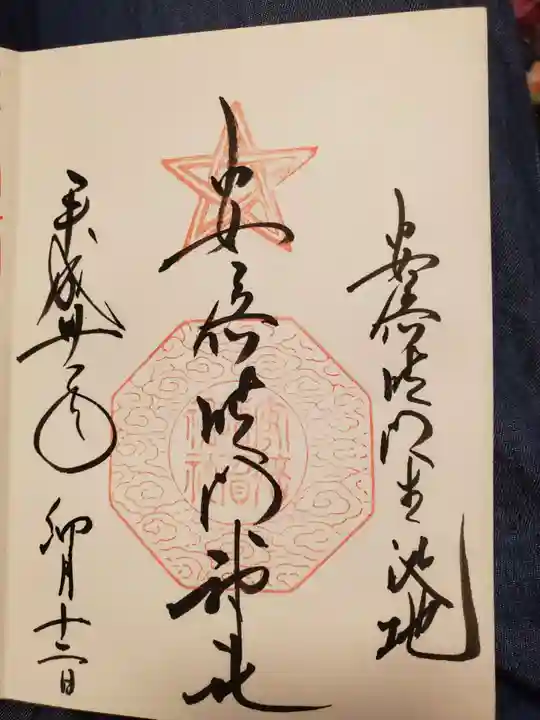 安倍晴明生誕地
安倍晴明神社
平成卅一年 卯月十二日